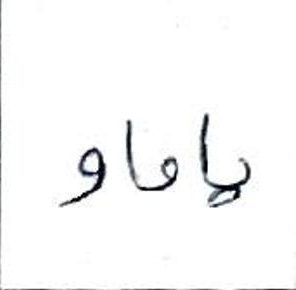 ياماو